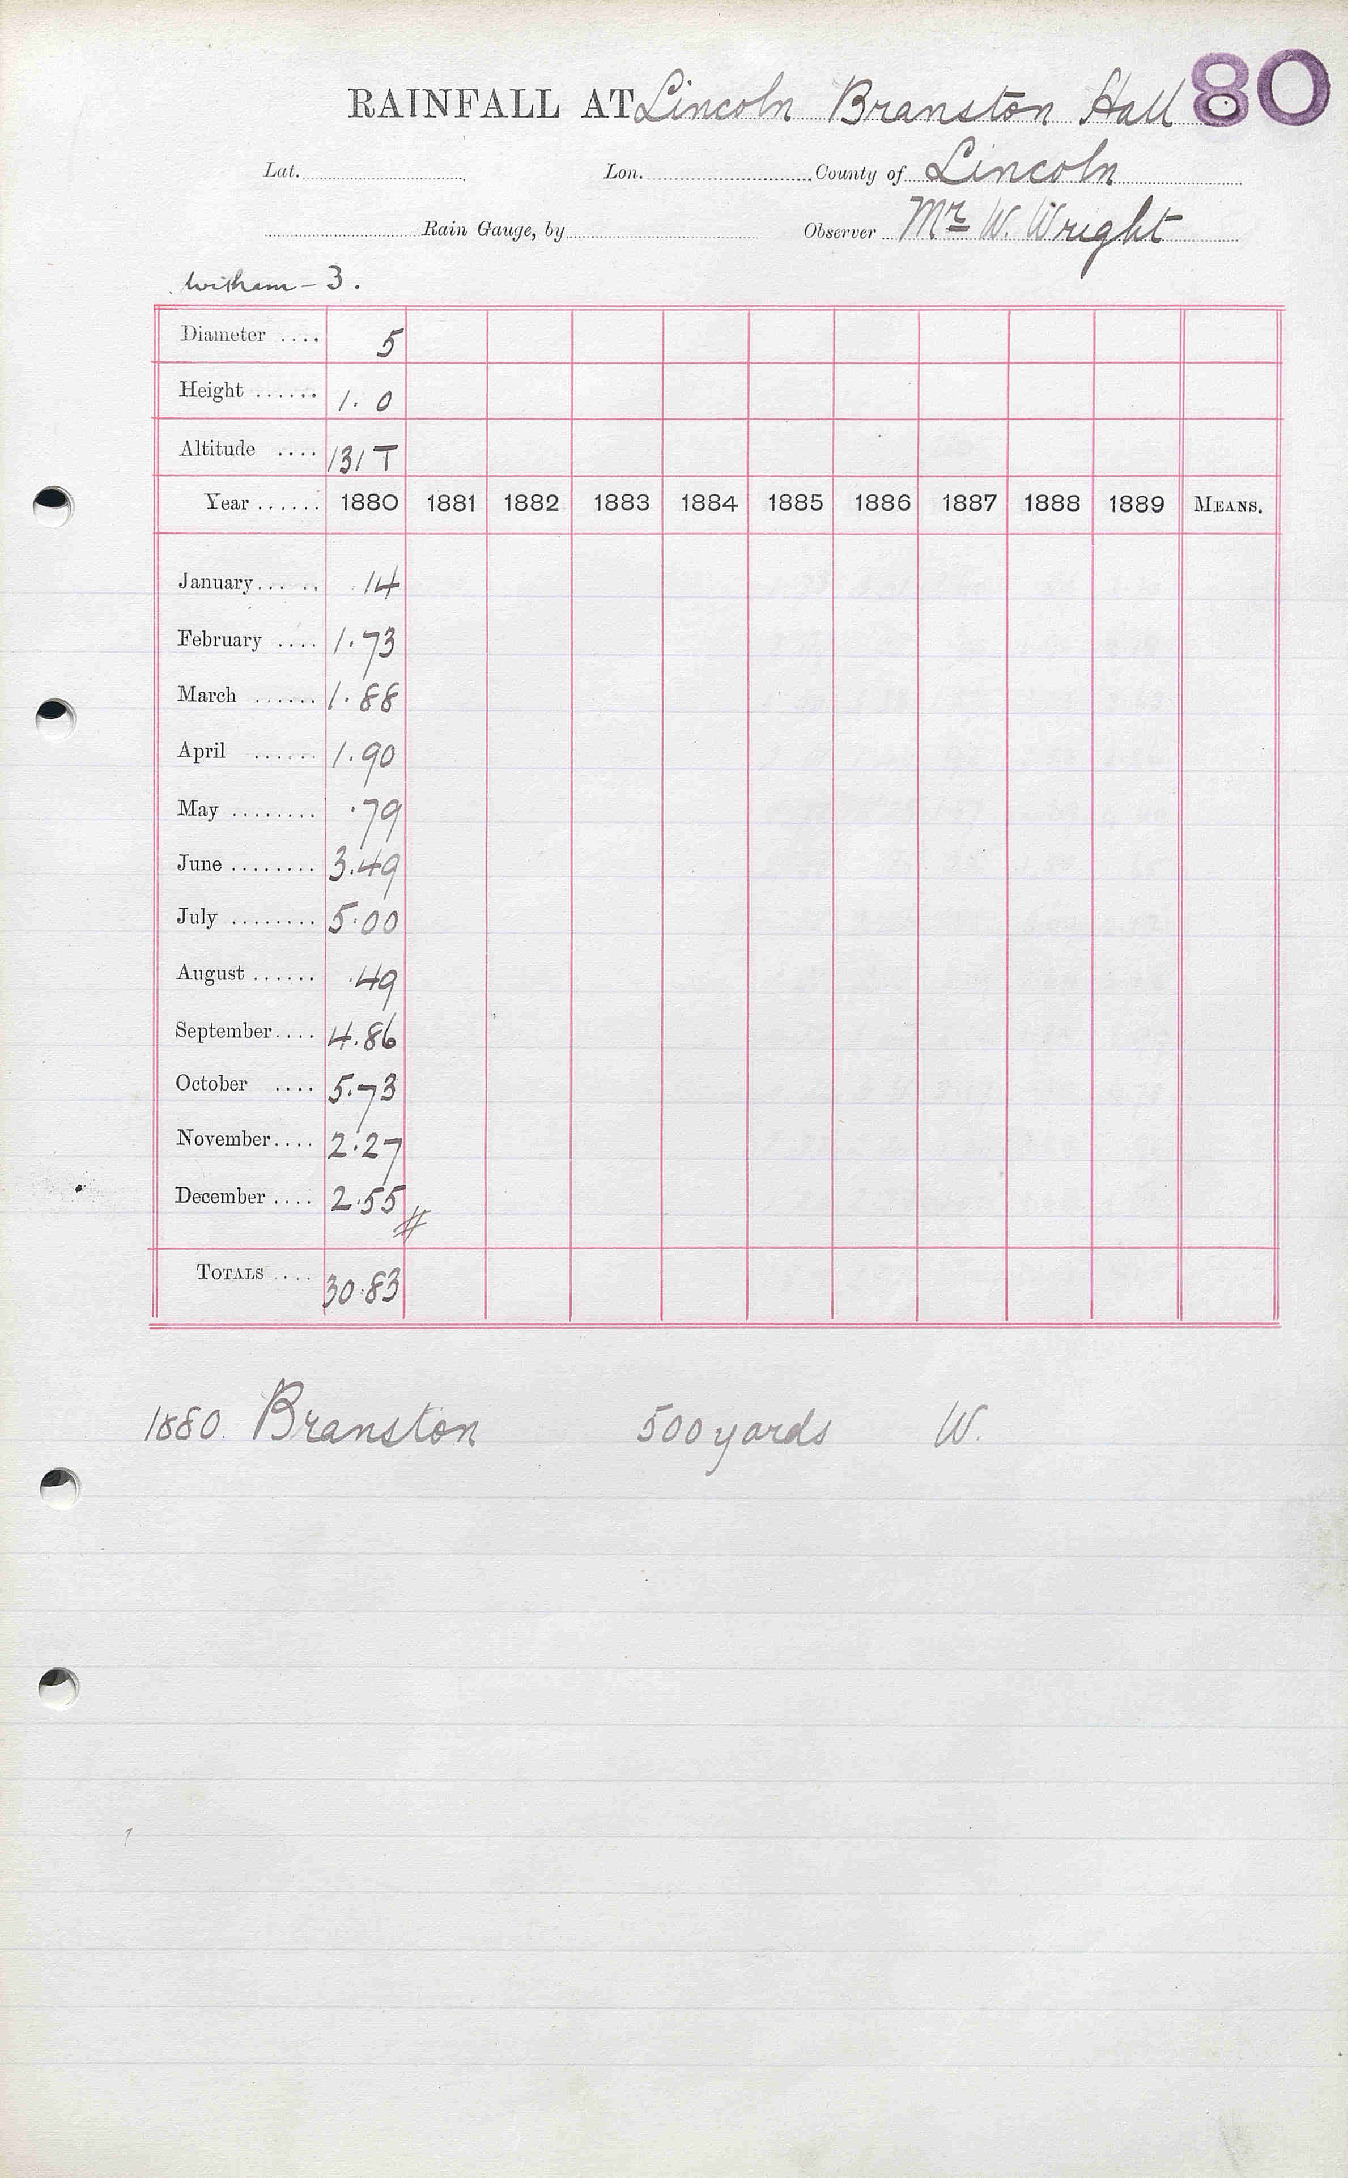 RAINFALL AT Lincoln Branston Hall 80
Lat. Lon. County of Lincoln
Rain Gauge, by Observer Mr W. Wright
Witham - 3.
Diameter .... 5
Height ...... 1. 0
Altitude .... 131 T
Year ...... 1880 1881 1882 1883 1884 1885 1886 1887 1888 1889 MEANS.
January...... .14
February .... 1.73
March ...... 1.88
April ...... 1.90
May ........ .79
June ........ 3.49
July ........ 5.00
August ...... .49
September.... 4.86
October .... 5.73
November.... 2.27
December .... 2.55 #
TOTALS .... 30.83
1880. Branston 500 yards W.